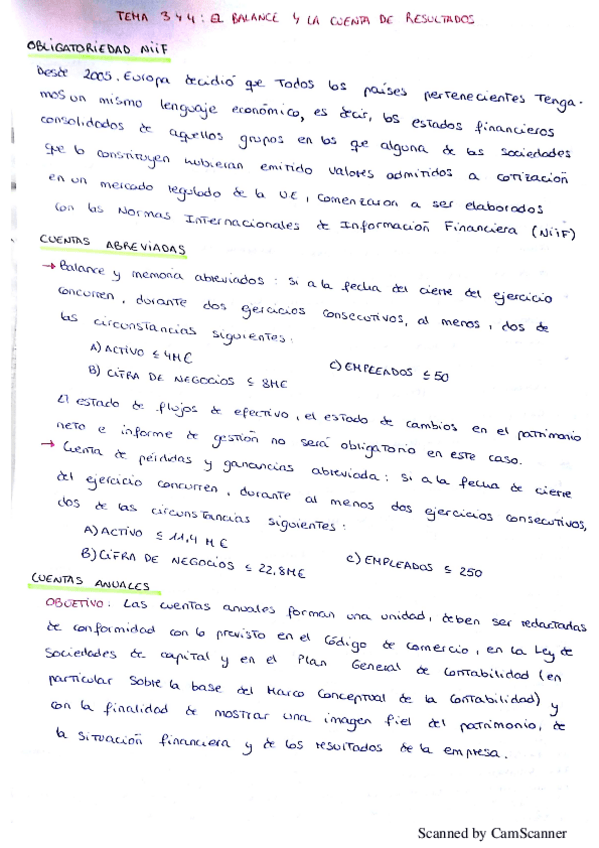 TEMA 3 Y 4: EL BALANCE Y LA CUENTA DE RESULTADOS
OBLIGATORIEDAD NIIF
Desde 2005, Europa decidió que todos los países pertenecientes tenga-
mos un mismo lenguaje económico, es decir, los estados financieros
consolidados de aquellos grupos en los que alguna de las sociedades
que lo constituyen hubieran emitido valores admitidos a cotización
en un mercado regulado de la UE, comenzaron a ser elaborados
con las Normas Internacionales de Información Financiera (NIIF)
CUENTAS ABREVIADAS
→ Balance y memoria abreviados: si a la fecha del cierre del ejercicio
concurren, durante dos ejercicios consecutivos, al menos, dos de
las circunstancias siguientes:
A) ACTIVO ≤ 4M€
C) EMPLEADOS ≤ 50
B) CIFRA DE NEGOCIOS ≤ 8M€
El estado de flujos de efectivo, el estado de cambios en el patrimonio
neto e informe de gestión no será obligatorio en este caso.
→ Cuenta de pérdidas y ganancias abreviada: si a la fecha de cierre
del ejercicio concurren, durante al menos dos ejercicios consecutivos,
dos de las circunstancias siguientes:
A) ACTIVO ≤ 11,4 M€
C) EMPLEADOS ≤ 250
B) CIFRA DE NEGOCIOS ≤ 22,8M€
CUENTAS ANUALES
OBJETIVO: Las cuentas anuales forman una unidad, deben ser redactadas
de conformidad con lo previsto en el Código de comercio, en la Ley de
Sociedades de capital y en el Plan General de Contabilidad (en
particular sobre la base del Marco Conceptual de la Contabilidad) y
con la finalidad de mostrar una imagen fiel del patrimonio, de
la situación financiera y de los resultados de la empresa.
Scanned by CamScanner